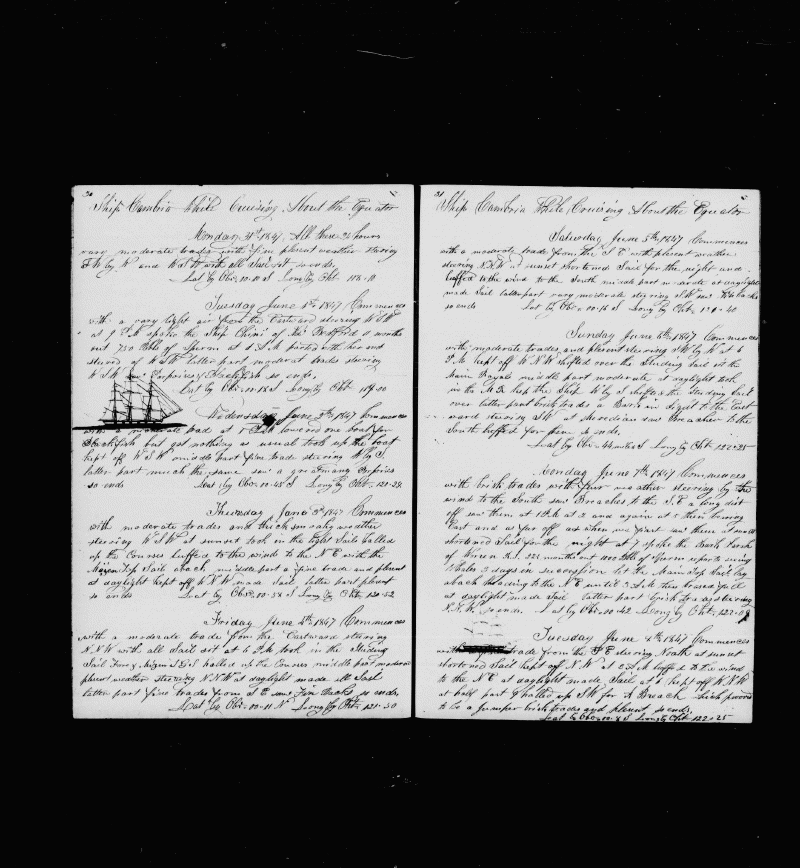 30
Ship Cambria While Cruising About the Equator
Monday 31st 1847 All these 24 hours
vary moderate trades with fine plesent weather stering
W by W and WSW with all Sail sit so ends
Lat by Obs 00-10 S Long by Cht 118-11
Tuesday June 1st 1847 Commences
with a vary light air from the Eastward stearing WSW
at 1 P.M spoke the Ship China of New Bedford months
out 750 bbls of Sperm at P.M parted with her and
steerd of WSW latter part moderat trades steering
WSW saw Porpoises & Blackfish so ends
Lat by Obs 00-18 S Long by Cht 119-30
Wedensday June 2th 1847 Commences
with a moderate trad at 1 P.M lowerd one boat for
Blackfish but got nothing as usual took up the boat
kept off WSW middle part fine trade steering W by S
latter part much the same saw a gre Finany Porpoises
so ends Lat by Obs 00-48 S Long by Cht 120-29
Thursday June 3th 1847 Commences
with moderate trades and thick smoaky weather
steering WSW at sunset took in the light Sails halled
up the Courses luffed to the wind to the N E with the
Mizen Top Sail aback middle part a fine trade and plesent
at daylight kept off WNW made Sail latter part plesent
so ends Lat by Obs 00-38 S Long by Cht 120-52
Friday June 4th 1847 Commences
with a moderate trade from the Eastward steering
NNW with all Sail sit at 6 P.M took in the Studing
Sail Fore & Mizen T Gsl halled up the Courses middle part moderate
plesent weather steering NNW at daylight made all Sail
latter part fine trades from S E saw Fin Backs so ends
Lat by Obs 00-11 N Long by Cht 121-30
31
Ship Cambria While Cruising About the Equator
Saturday June 5th 1847 Commences
with a moderate trade from the S E with plesent weather
steering NNW at sunset shortened Sail for the night and
luffed to the wind to the South midle part moderate at daylight
made Sail latter part vary moderate steering SW saw Finbacks
so ends Lat by Obs 00-16 S Long by Cht 121-40
Sunday June 6th 1847 Commences
with moderate trades and plesent steering SW by W at 6
P.M kept off WNW shifted over the Studing Sail in the
Main Royal middle part moderate at daylight took
in the M R kep the Ship W by S shifted the Studing Sail
over latter part brisk trades a Bark in sight to the East
ward steering SW at Meredian saw Breacher to the
South luffed for him so ends
Lat by Obs 44 miles S Long by Cht 122-25
Monday June 7th 1847 Commences
with brisk trades with fair weather steering by the
wind to the South saw Breaches to the S E a long dist
off saw them at 1 P.M at 2 and again at 5 then bearing
East and as far off as when we first saw them at sunset
shortened Sail for the night at 7 spoke the Bark Lark
of Waren R.I. 22 months out 400 bbls of Sperm reports seeing
Whales 3 days in succession lit the Main Top Sail lay
aback heading to the N E until 3 A.M then braced full
at daylight made Sail latter part brisk trades steering
NNW so ends Lat by Obs 00-42 Long by Cht 122-08
Tuesday June 8th 1847 Commences
with trade from the S E stering North at sunset
shortened Sail kept off NW at P.M luffed to the wind
to the N E at daylight made Sail at 6 kept off WNW
at half part 9 halled up SW for A Breach which proved
to be a Jumper brisk trades and plesent so ends
Lat by Obs 00-8 S Long by Cht 122-25